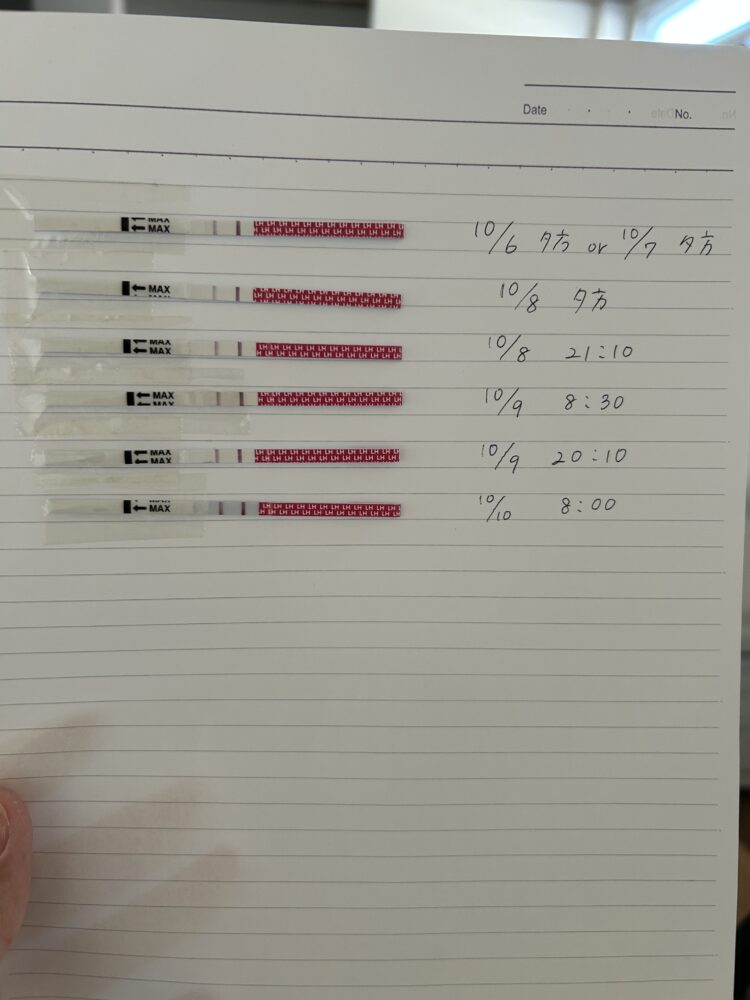 Date No.
MAX
MAX
LH LH LH LH LH LH LH LH LH LH LH LH
10/6 夕方 or 10/7 夕方
MAX
LH LH LH LH LH LH LH LH LH LH LH LH
10/8 夕方
MAX
MAX
LH LH LH LH LH LH LH LH LH LH LH LH
10/8 21:10
MAX
MAX
LH LH LH LH LH LH LH LH LH LH LH LH
10/9 8:30
MAX
MAX
LH LH LH LH LH LH LH LH LH LH LH LH
10/9 20:10
MAX
LH LH LH LH LH LH LH LH LH LH LH LH
10/10 8:00